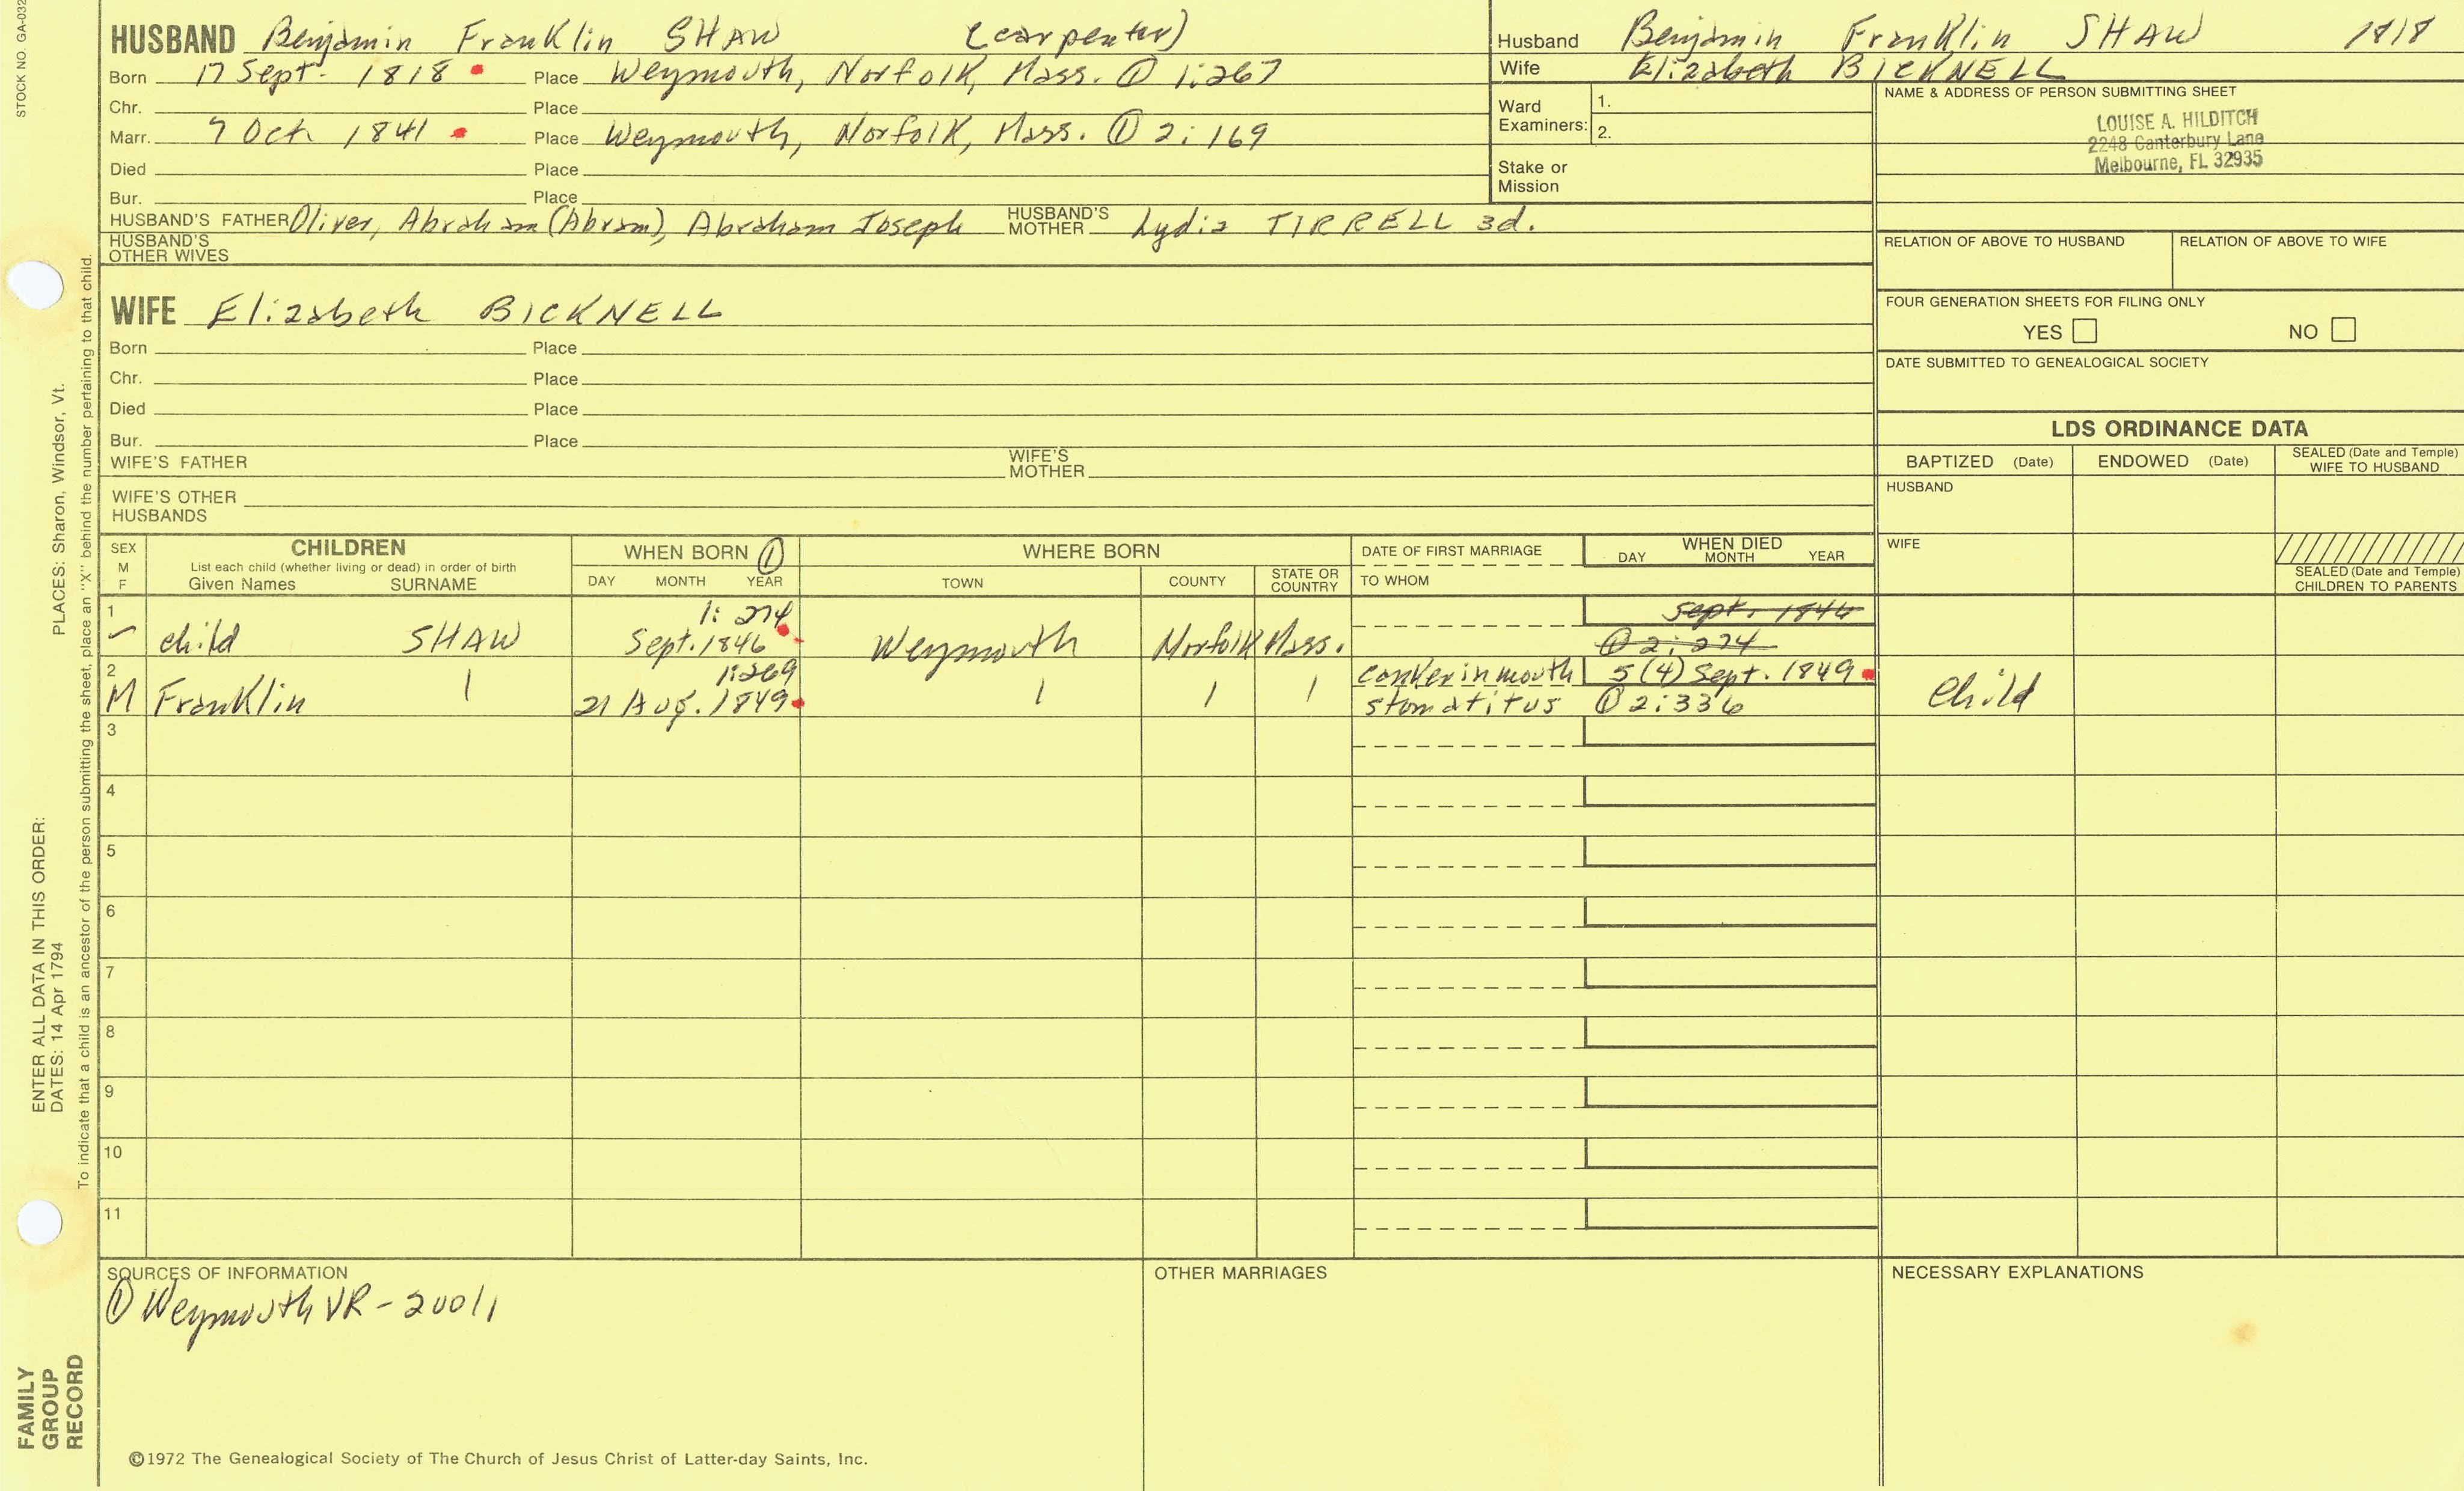 STOCK NO. GA-032
HUSBAND Benjamin Franklin SHAW (carpenter)
Born 17 Sept. 1818 Place Weymouth, Norfolk, Mass. ① 1:267
Chr. Place
Marr. 7 Oct 1841 Place Weymouth, Norfolk, Mass. ① 2:169
Died Place
Bur. Place
HUSBAND'S FATHER Oliver, Abraham (Abram), Abraham Joseph HUSBAND'S MOTHER Lydia TIRRELL 3d.
HUSBAND'S OTHER WIVES
Husband Benjamin Franklin SHAW 1818
Wife Elizabeth BICKNELL
Ward Examiners: 1.
2.
Stake or Mission
NAME & ADDRESS OF PERSON SUBMITTING SHEET
LOUISE A. HILDITCH
2248 Canterbury Lane
Melbourne, FL 32935
RELATION OF ABOVE TO HUSBAND RELATION OF ABOVE TO WIFE
FOUR GENERATION SHEETS FOR FILING ONLY
YES NO
DATE SUBMITTED TO GENEALOGICAL SOCIETY
WIFE Elizabeth BICKNELL
Born Place
Chr. Place
Died Place
Bur. Place
WIFE'S FATHER WIFE'S MOTHER
WIFE'S OTHER HUSBANDS
LDS ORDINANCE DATA
BAPTIZED (Date) ENDOWED (Date) SEALED (Date and Temple) WIFE TO HUSBAND
HUSBAND
WIFE
SEALED (Date and Temple) CHILDREN TO PARENTS
SEX M F CHILDREN
List each child (whether living or dead) in order of birth
Given Names SURNAME
WHEN BORN ①
DAY MONTH YEAR
WHERE BORN
TOWN COUNTY STATE OR COUNTRY
DATE OF FIRST MARRIAGE
TO WHOM
WHEN DIED
DAY MONTH YEAR
1 1: 274 Sept. 1846
child SHAW Sept. 1846 Weymouth Norfolk Mass. ① 2: 274
2 1:269 canker in mouth 5 (4) Sept. 1849
M Franklin 21 Aug. 1849 stomatitus ① 2:336 child
3
4
5
6
7
8
9
10
11
SOURCES OF INFORMATION
① Weymouth VR - 20011
OTHER MARRIAGES
NECESSARY EXPLANATIONS
©1972 The Genealogical Society of The Church of Jesus Christ of Latter-day Saints, Inc.
FAMILY
GROUP
RECORD
ENTER ALL DATA IN THIS ORDER:
DATES: 14 Apr 1794 PLACES: Sharon, Windsor, Vt.
To indicate that a child is an ancestor of the person submitting the sheet, place an "X" behind the number pertaining to that child.